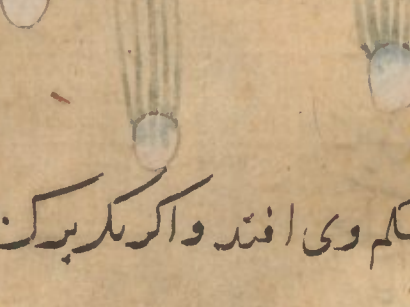 شکم وی افتد و اکر یک برک